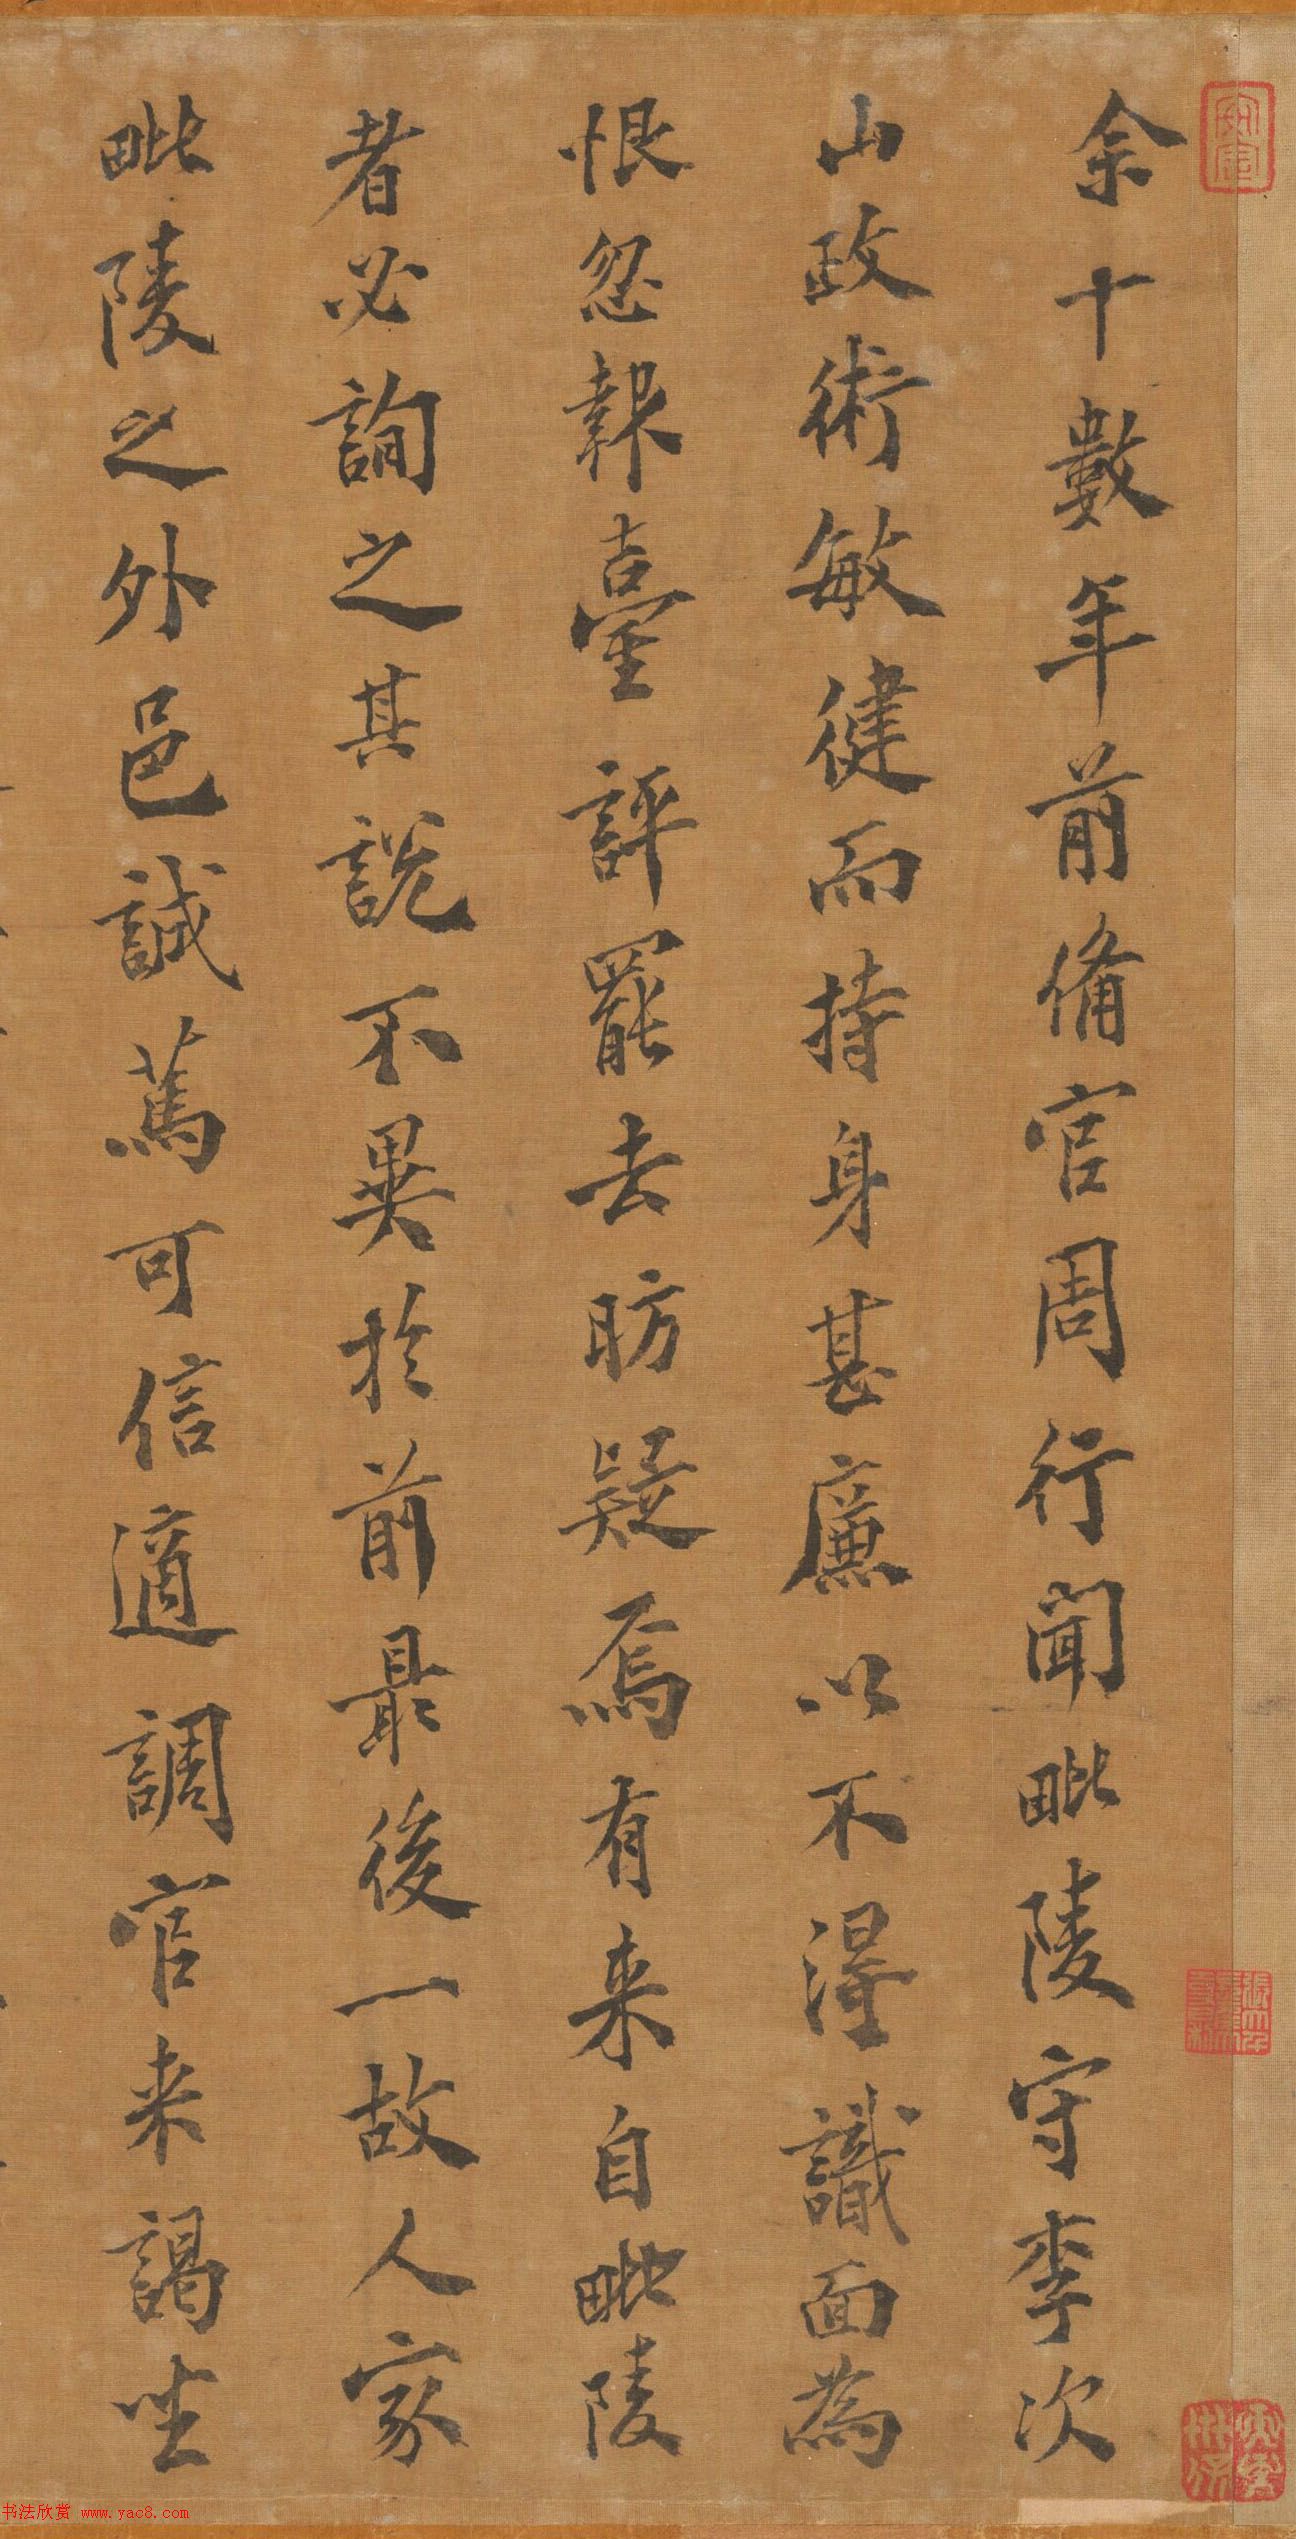 余十數年前備官周行聞毗陵守李次
山政術敏健而持身甚廉以不得識面為
恨忽報臺評罷去昉疑焉有来自毗陵
者必詢之其說不異於前最後一故人家
毗陵之外邑誠篤可信適調官来謁坐
书法欣赏 www.yac8.com